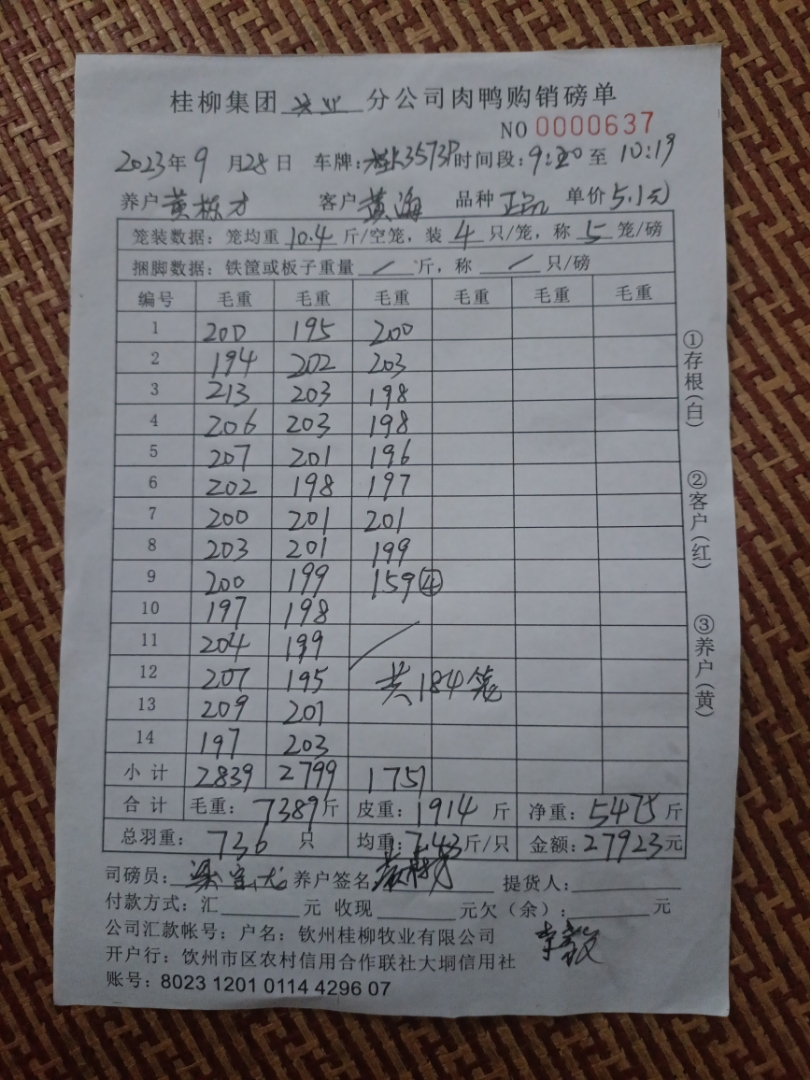 桂柳集团 兴业 分公司肉鸭购销磅单
NO 0000637
2023年9月28日 车牌: 3573P 时间段: 9:20 至 10:19
养户 黄栋才 客户 黄海 品种 正品 单价 5.1元
笼装数据: 笼均重 10.4 斤/空笼, 装 4 只/笼, 称 5 笼/磅
捆脚数据: 铁筐或板子重量 / 斤, 称 / 只/磅
编号 毛重 毛重 毛重 毛重 毛重 毛重
1 200 195 200
2 194 202 203
3 213 203 198
4 206 203 198
5 207 201 196
6 202 198 197
7 200 201 201
8 203 201 199
9 200 199 159 ④
10 197 198
11 204 199
12 207 195 共184笼
13 209 201
14 197 203
小计 2839 2799 1751
合计 毛重: 7389斤 皮重: 1914 斤 净重: 5475斤
总羽重: 736 只 均重: 7.43斤/只 金额: 27923元
司磅员: 养户签名 提货人:
付款方式: 汇 元 收现 元欠(余): 元
公司汇款帐号: 户名: 钦州桂柳牧业有限公司
开户行: 饮州市区农村信用合作联社大垌信用社
账号: 8023 1201 0114 4296 07
①存根(白)
②客户(红)
③养户(黄)